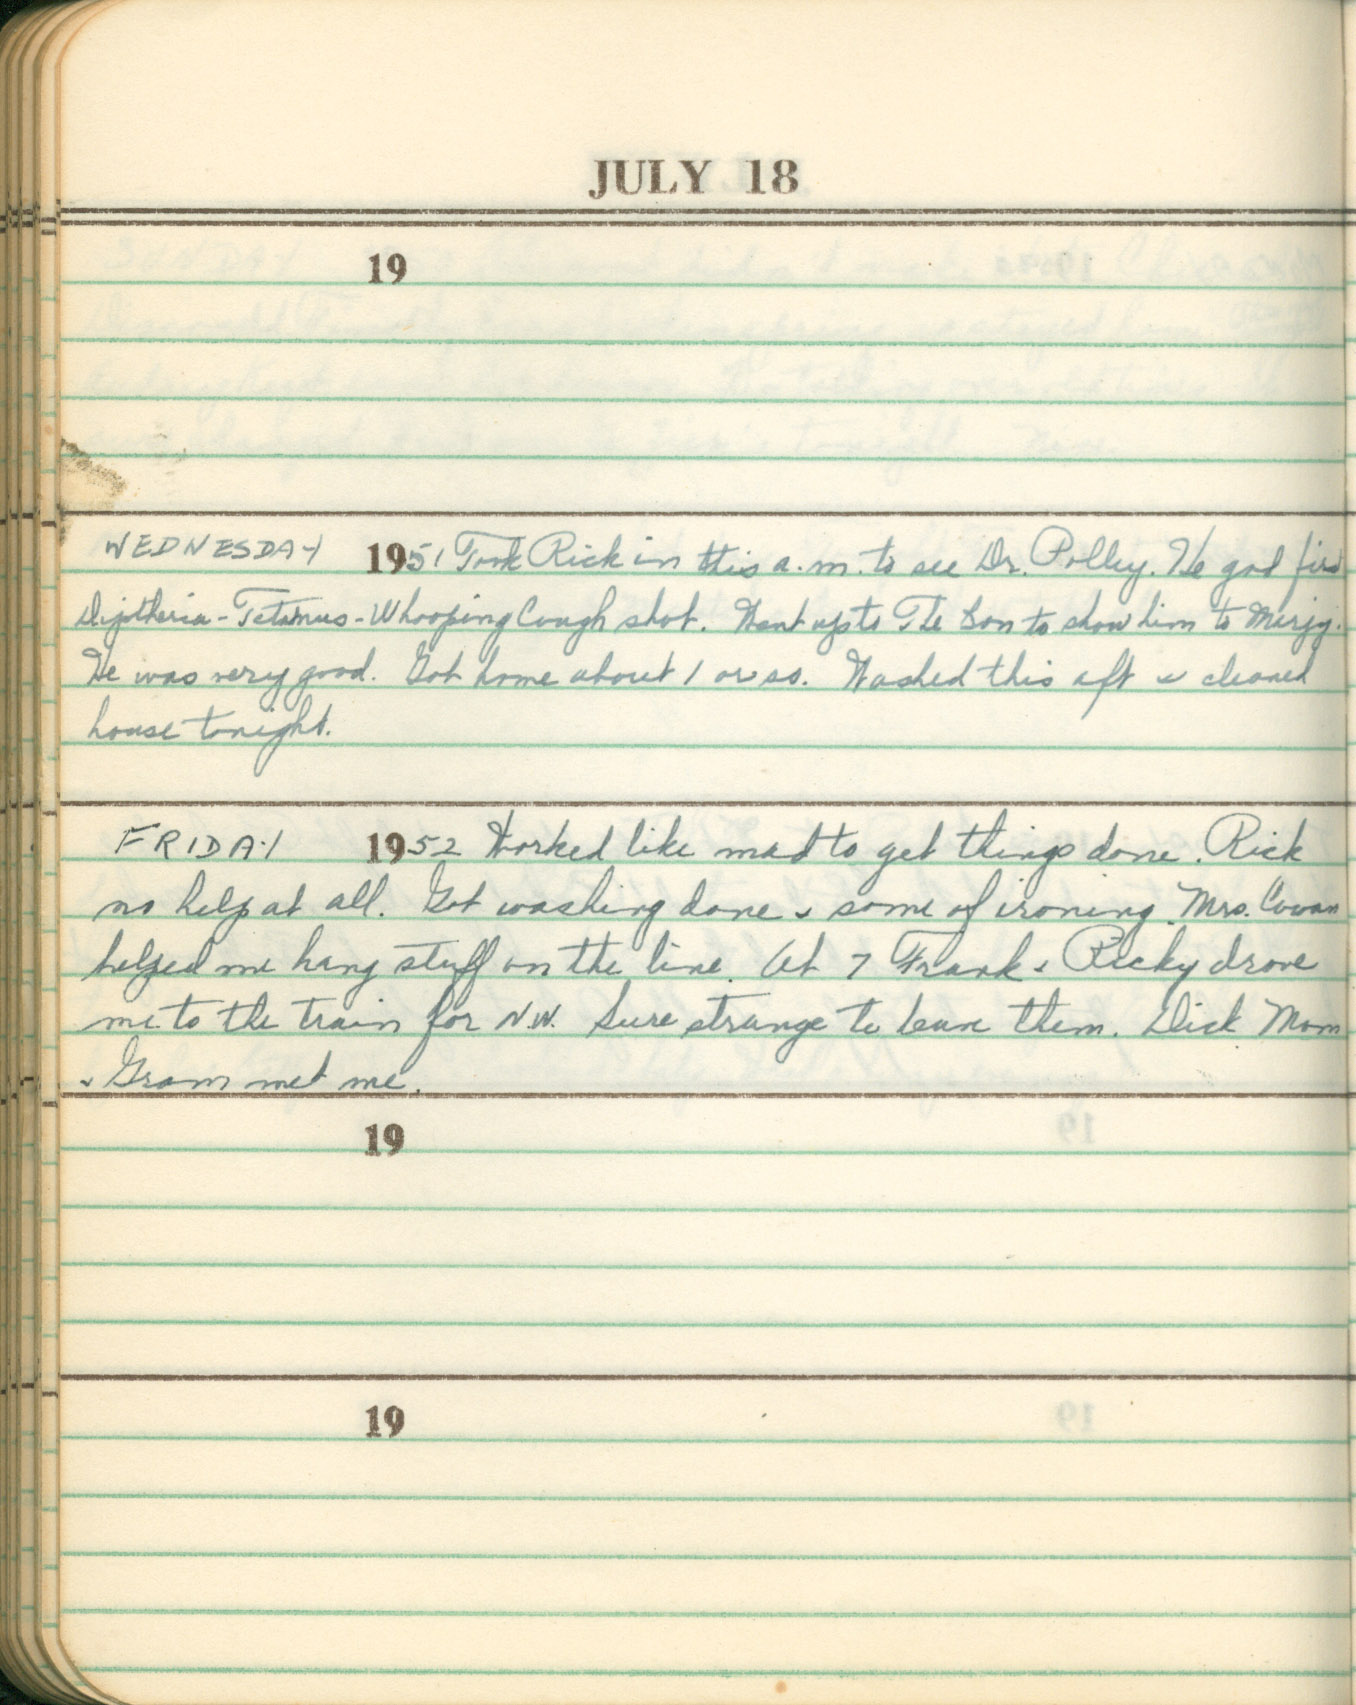 JULY 18
19
WEDNESDAY 1951 Took Rick in this a.m. to see Dr. Polley. He got first
Diptheria-Tetanus-Whooping Cough shot. Went up to The Bon to show him to Marjy.
He was very good. Got home about 1 or so. Washed this aft & cleaned
house tonight.
FRIDAY 1952 Worked like mad to get things done. Rick
no help at all. Got washing done & some of ironing. Mrs. Cowan
helped me hang stuff on the line. At 7 Frank & Ricky drove
me to the train for N.W. Sure strange to leave them. Dick Mom
& Gram met me.
19
19